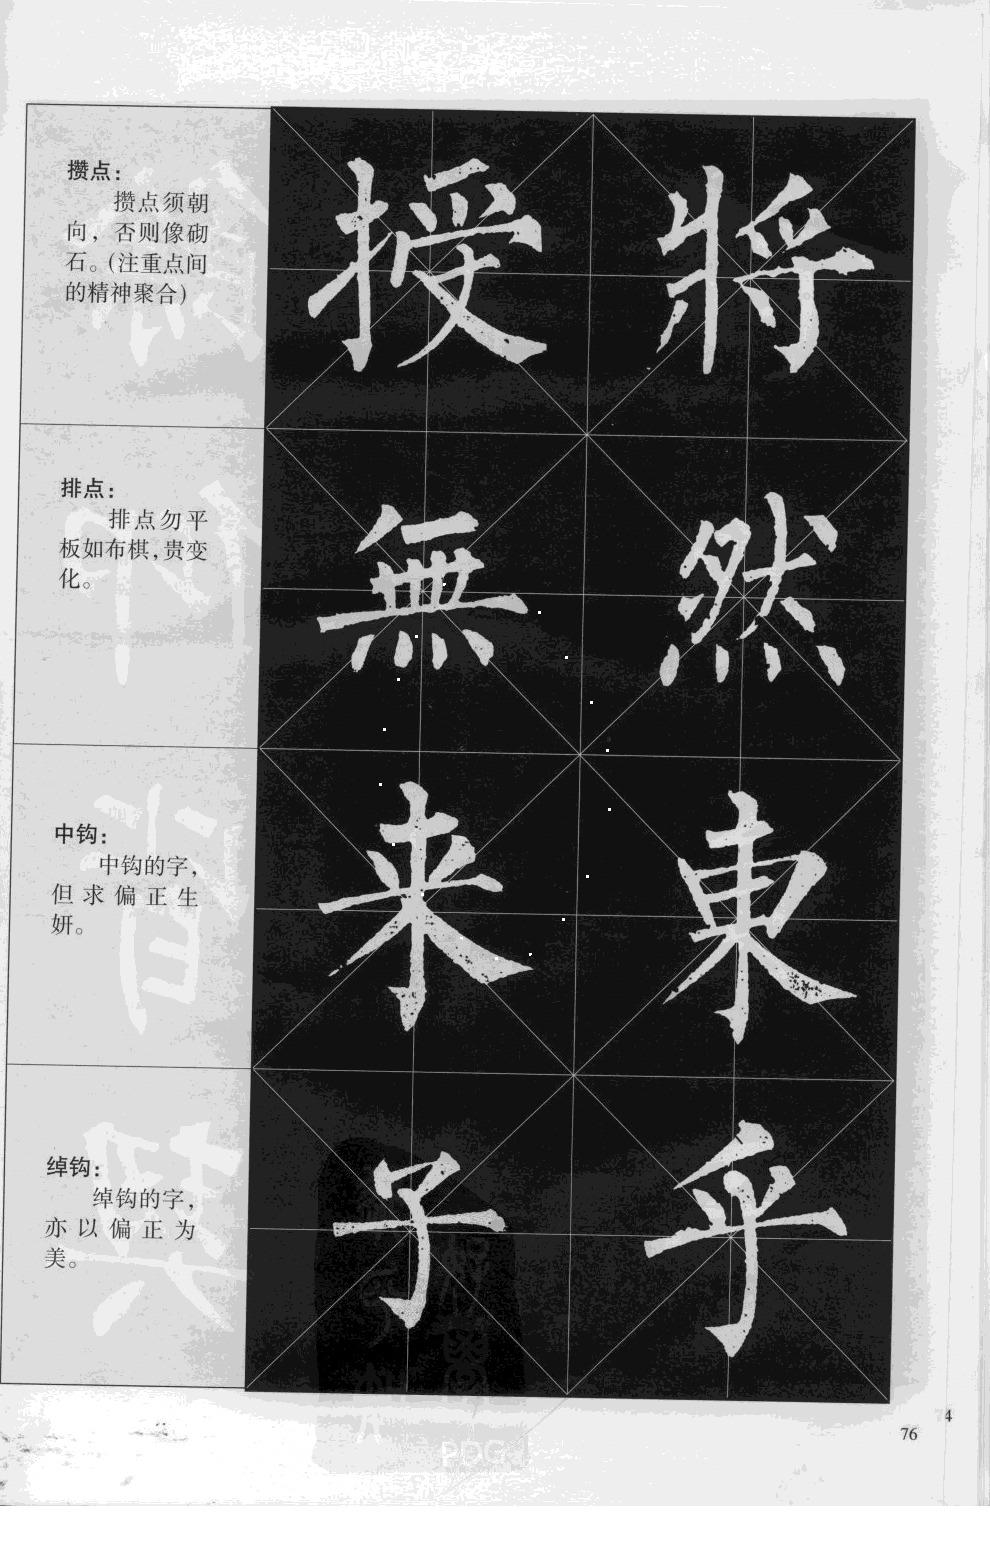 攒点：
攒点须朝
向，否则像砌
石。(注重点间
的精神聚合)
授 將
排点：
排点勿平
板如布棋，贵变
化。
無 然
中钩：
中钩的字，
但求偏正生
妍。
来 東
绰钩：
绰钩的字，
亦以偏正为
美。
子 乎
4
76
PDG